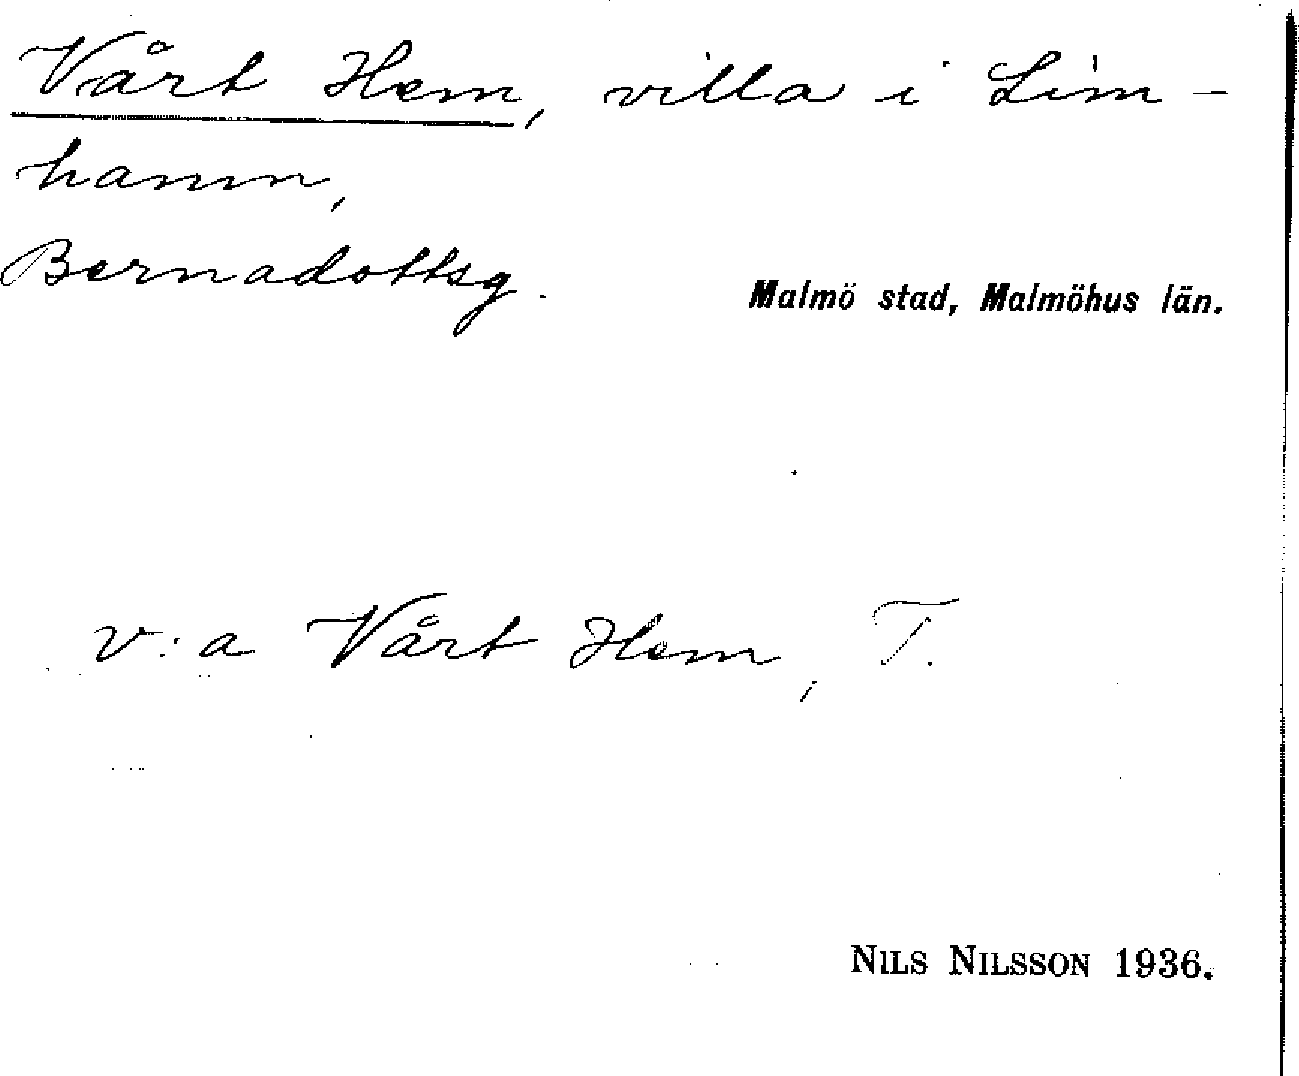 Vårt Hem, villa i Lim-
hamn,
Bernadottsg.
Malmö stad, Malmöhus län.
v:a Vårt Hem, T.
NILS NILSSON 1936.